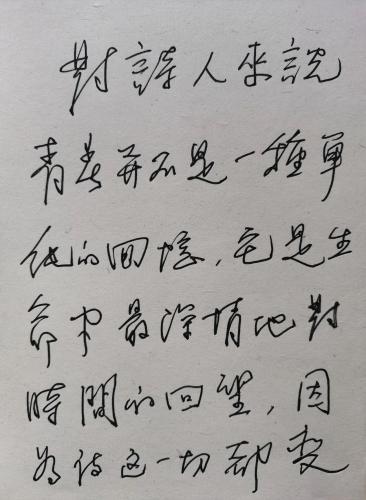 對詩人來說
青春并不是一種單
純的回憶，它是生
命中最深情地對
時間的回望，因
為待這一切都變